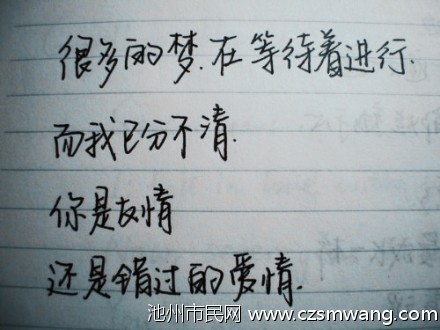 很多的梦.在等待着进行.
而我已分不清.
你是友情
还是错过的爱情.
池州市民网 www.czsmwang.com